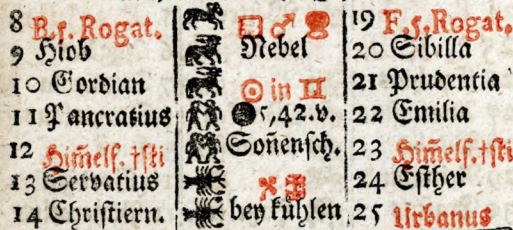 8 B. f. Rogat. 19 F. 5. Rogat.
9 Hiob Nebel 20 Sibilla
10 Gordian ☉ in ♊ 21 Prudentia
11 Pancratius ●5,42.v. 22 Emilia
12 Him̃elf. †sti Soñensch. 23 Him̃elf. †sti
13 Servatius 24 Esther
14 Christiern. bey kühlen 25 Urbanus